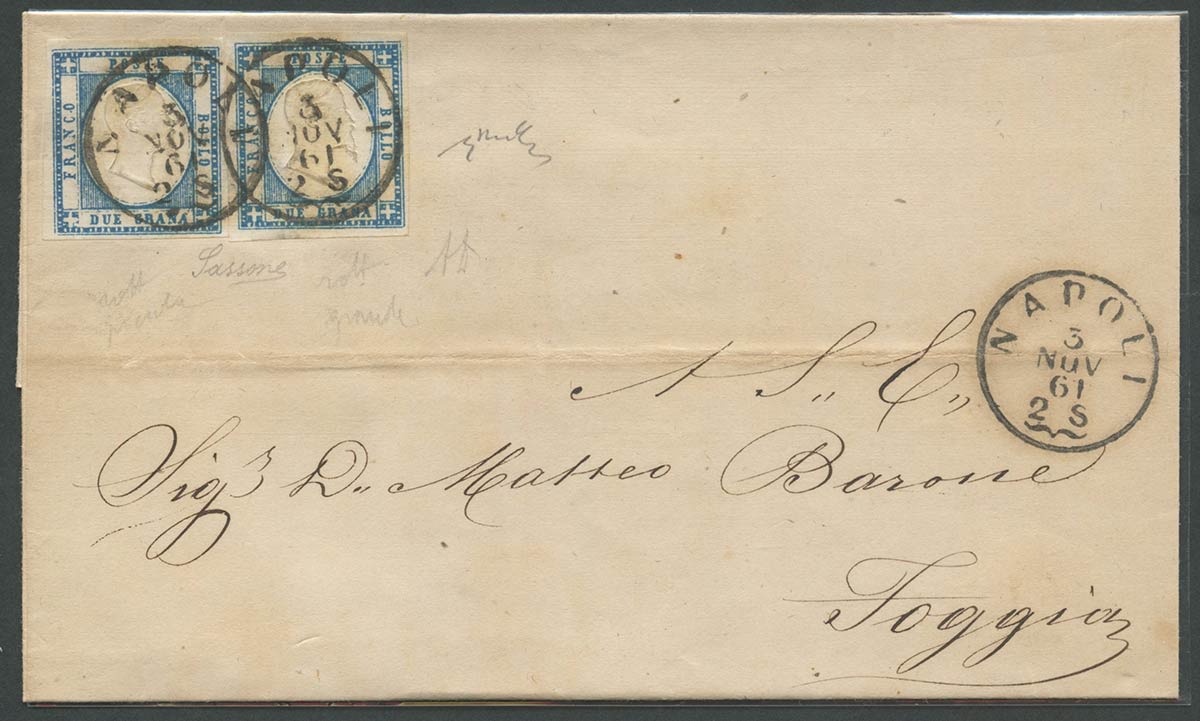 POSTE
FRANCO
BOLLO
DUE GRANA
POSTE
FRANCO
BOLLO
DUE GRANA
NAPOLI
3
NOV
61
2 S
NAPOLI
3
NOV
61
2 S
Sassone
AD
grande
NAPOLI
3
NOV
61
2 S
A S,, E,,
Sigr D,, Matteo Barone
Foggia